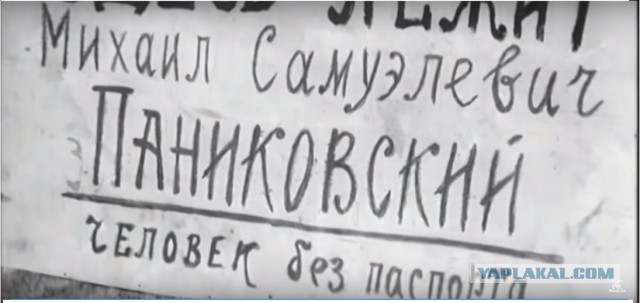 ЛЕЖИТ
Михаил Самуэлевич
ПАНИКОВСКИЙ
ЧЕЛОВЕК без
YAPLAKAL.COM